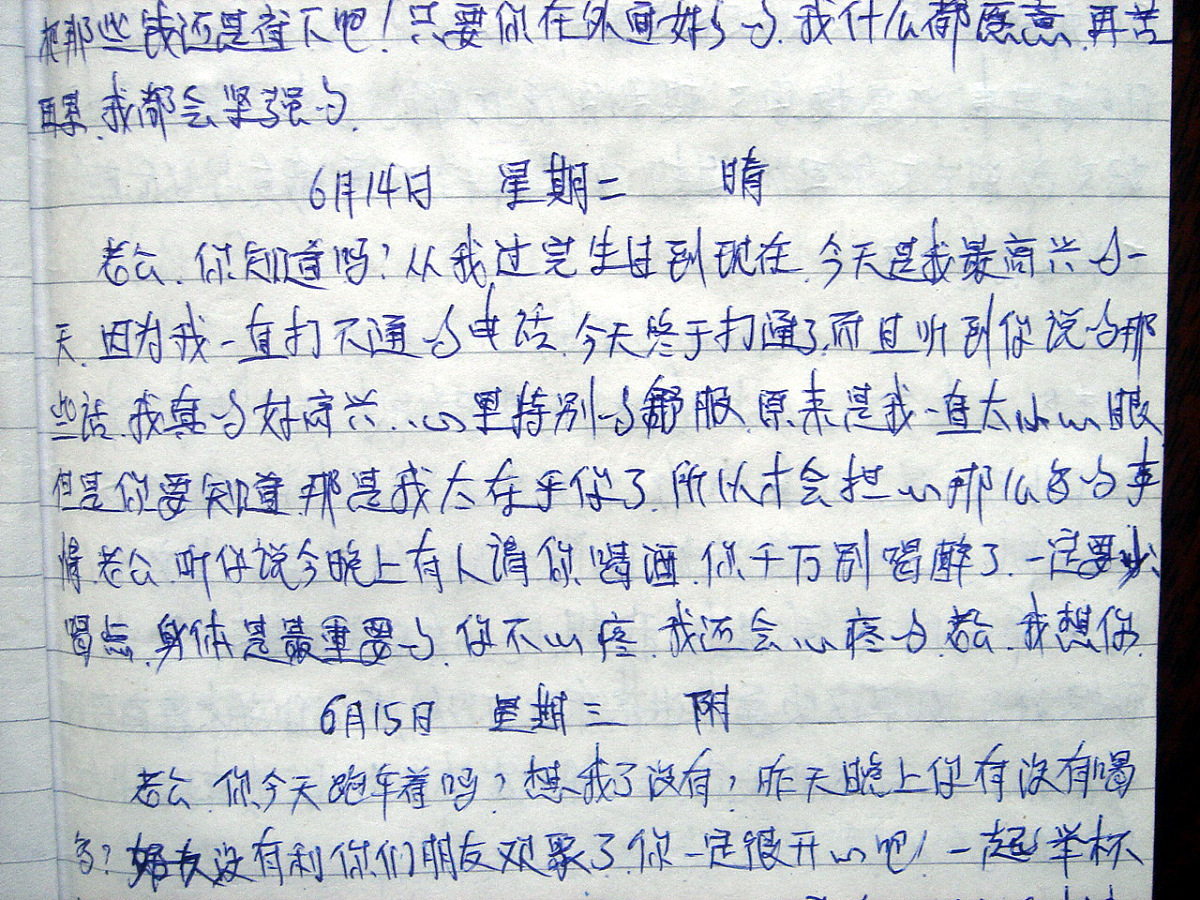 把那些钱还是存下吧！只要你在外面好好的，我什么都愿意，再苦
再累，我都会坚强的，
6月14日 星期二 晴
老公，你知道吗？从我过完生日到现在，今天是我最高兴的一
天，因为我一直打不通的电话，今天终于打通了，而且听到你说的那
些话，我真的好高兴，心里特别的舒服，原来是我一直太小心眼
但是你要知道，那是我太在乎你了，所以才会担心那么多的事
情，老公，听你说今晚上有人请你喝酒，你千万别喝醉了，一定要少
喝点，身体是最重要的，你不心疼，我还会心疼的，老公，我想你，
6月15日 星期三 阴
老公 你今天跑车着吗？想我了没有？昨天晚上你有没有喝
多？好友没有和你们朋友欢聚了你一定很开心吧！一起举杯